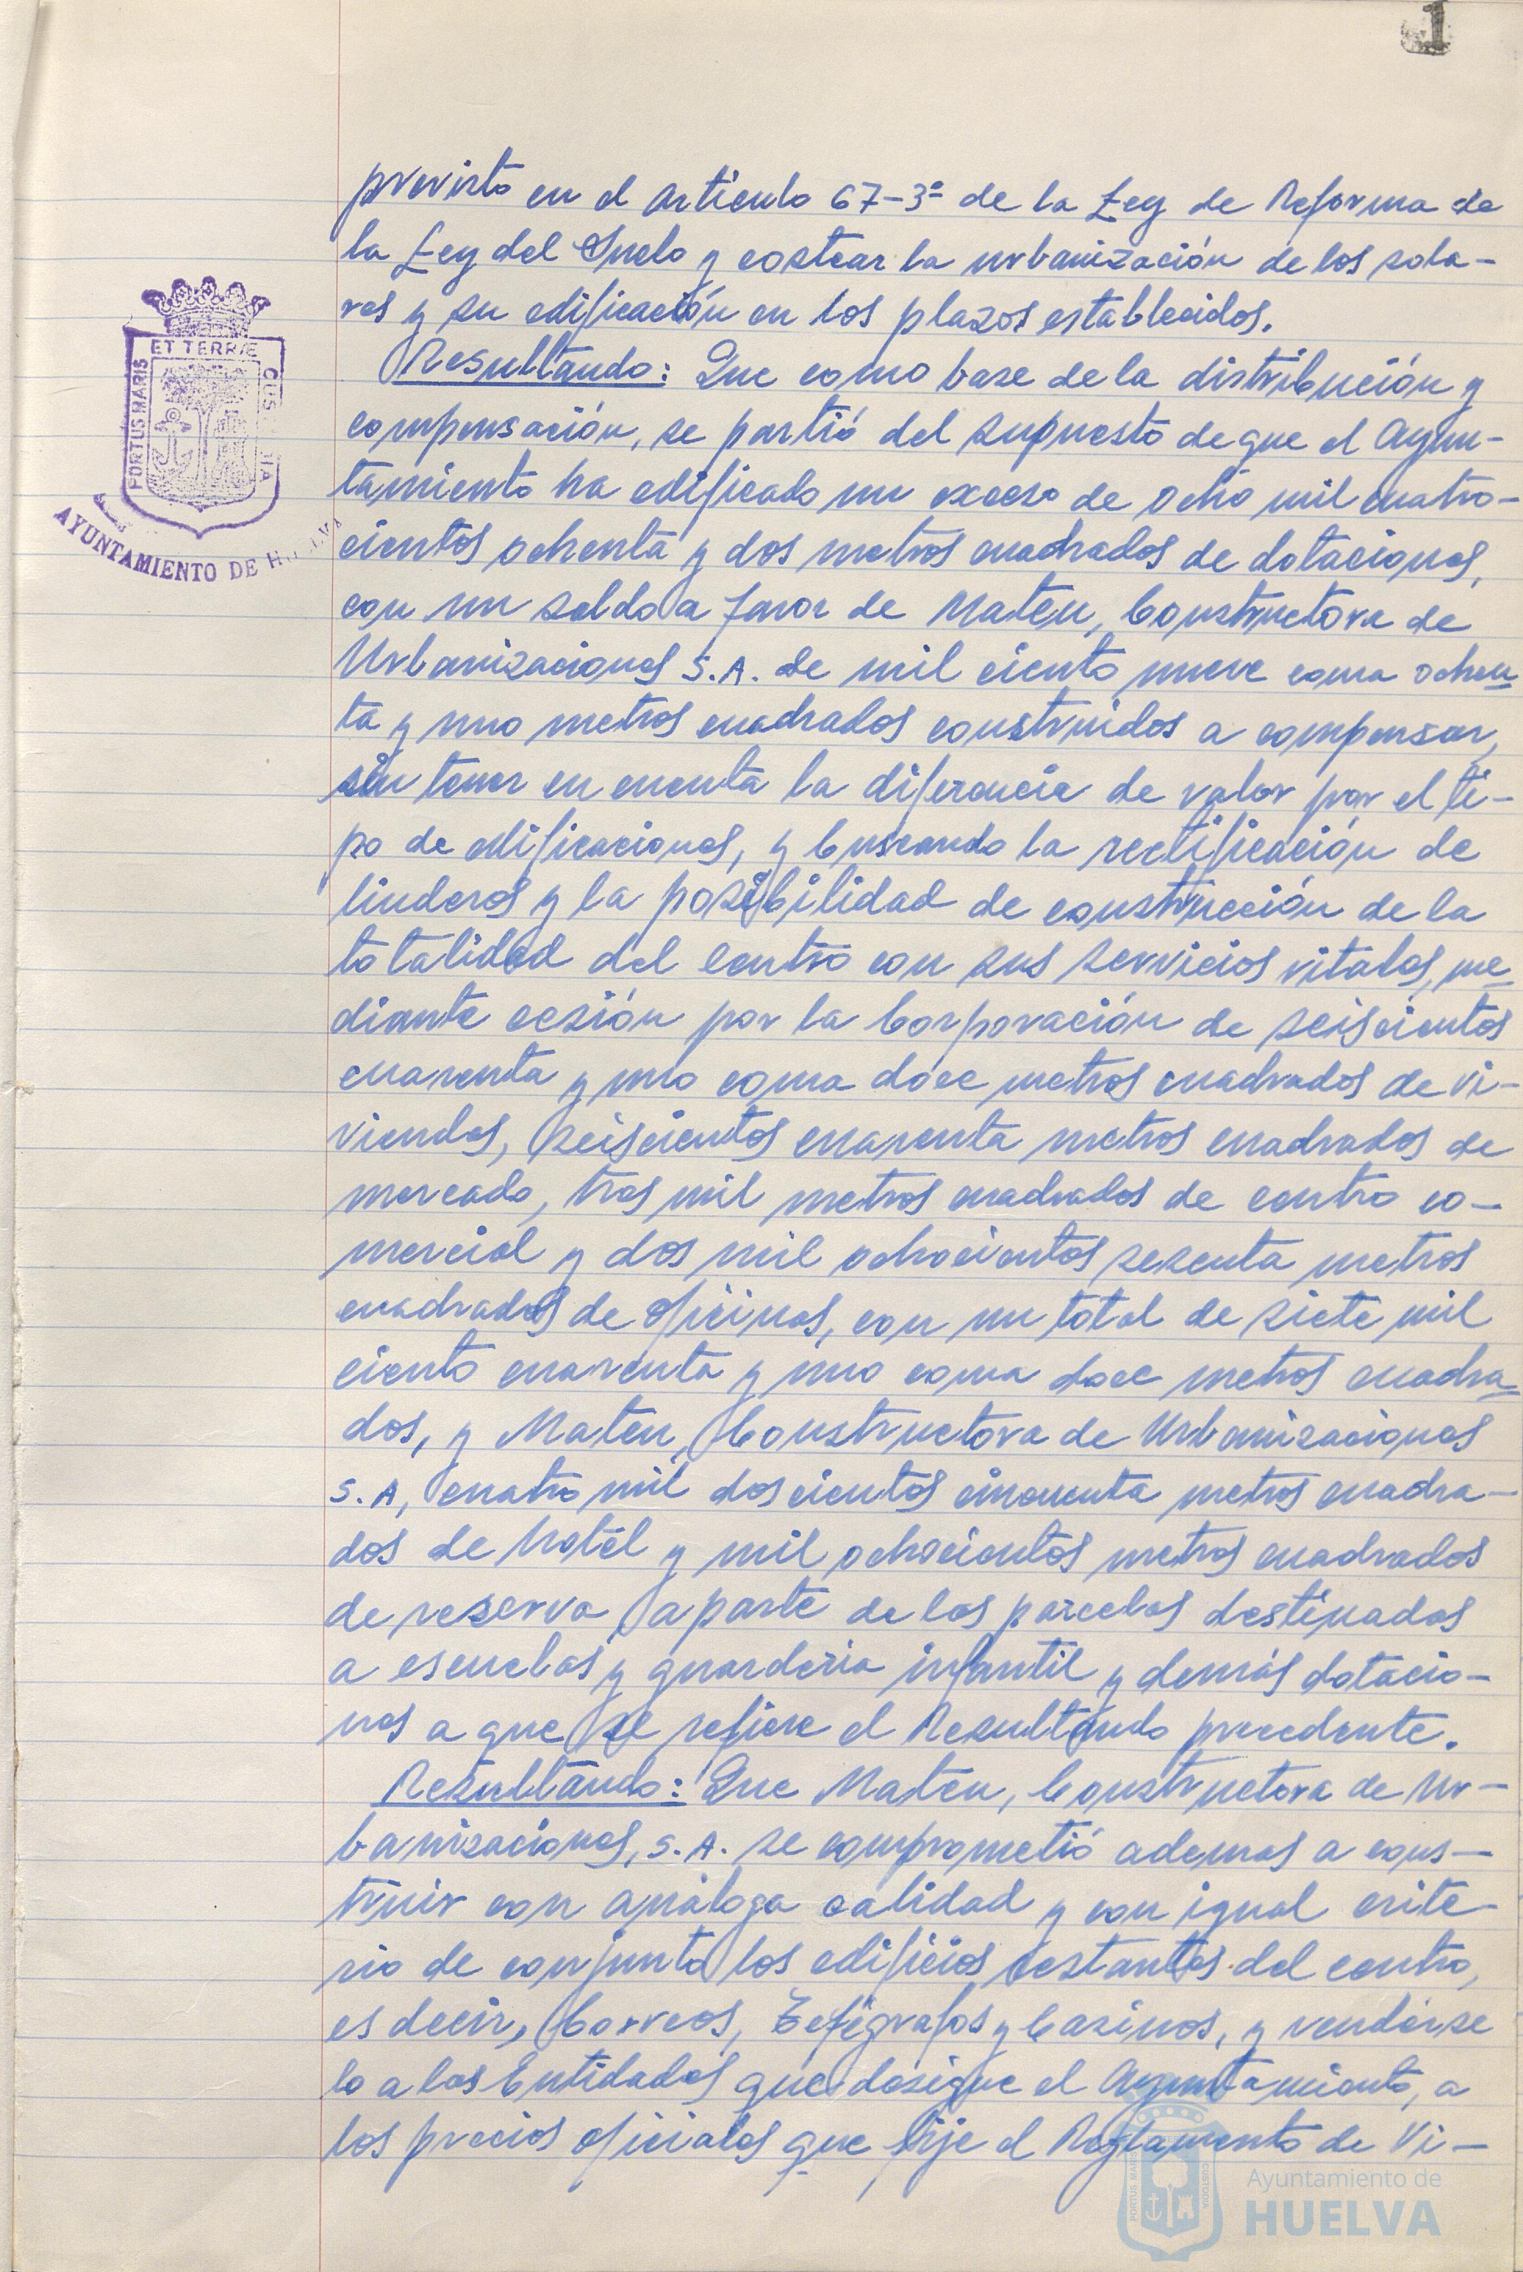 1
previsto en el artículo 67-3º de la Ley de Reforma de
la Ley del Suelo y costear la urbanización de los sola-
res y su edificación en los plazos establecidos.
Resultando: Que como base de la distribución y
compensación, se partió del supuesto de que el Ayun-
tamiento ha edificado un exceso de ocho mil cuatro-
cientos ochenta y dos metros cuadrados de dotaciones,
con un saldo a favor de Mateu, Constructora de
Urbanizaciones S.A. de mil ciento nueve coma ochen-
ta y uno metros cuadrados construidos a compensar,
sin tener en cuenta la diferencia de valor por el ti-
po de edificaciones, y buscando la rectificación de
linderos y la posibilidad de construcción de la
totalidad del centro con sus servicios vitales, me-
diante cesión por la Corporación de seiscientos
cuarenta y uno coma doce metros cuadrados de vi-
viendas, seiscientos cuarenta metros cuadrados de
mercado, tres mil metros cuadrados de centro co-
mercial y dos mil ochocientos sesenta metros
cuadrados de oficinas, con un total de siete mil
ciento cuarenta y uno coma doce metros cuadra-
dos, y Mateu, Constructora de Urbanizaciones
S.A, cuatro mil doscientos cincuenta metros cuadra-
dos de hotél y mil ochocientos metros cuadrados
de reserva, aparte de las parcelas destinadas
a escuelas y guarderia infantil y demás dotacio-
nes a que se refiere el Resultando precedente.
Resultando: Que Mateu, Constructora de Ur-
banizaciones, S.A. se comprometió ademas a cons-
truir con análoga calidad y con igual crite-
rio de conjunto los edificios restantes del centro,
es decir, Correos, Telégrafos y Casinos, y vendérse
lo a las Entidades que designe el Ayuntamiento, a
los precios oficiales que fije el Reglamento de Vi-
PORTUS MARIS
ET TERRÆ
CUS
IA
AYUNTAMIENTO DE H
PORTUS MARIS
CUSTODIA
Ayuntamiento de
HUELVA